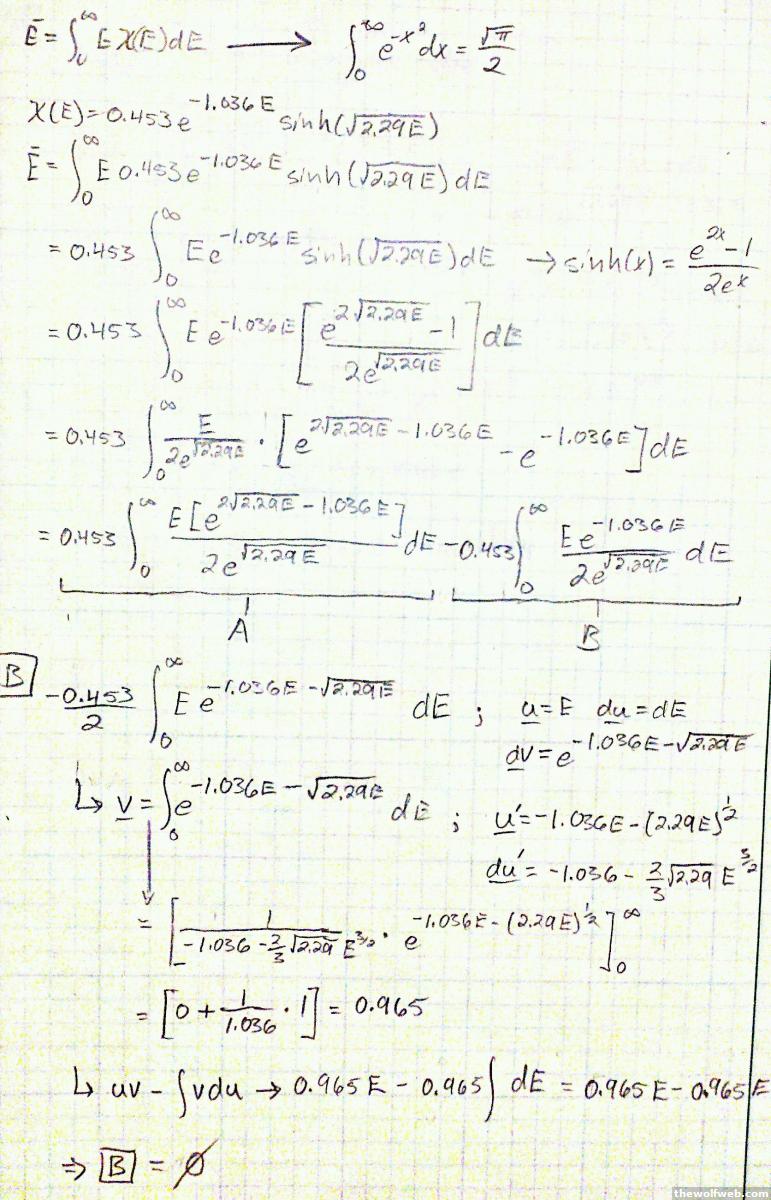 Ē = ∫₀^∞ E χ(E) dE ⟶ ∫₀^∞ e^(-x²) dx = √π/2
χ(E) = 0.453 e^(-1.036E) sinh(√(2.29E))
Ē = ∫₀^∞ E 0.453 e^(-1.036E) sinh(√(2.29E)) dE
= 0.453 ∫₀^∞ E e^(-1.036E) sinh(√(2.29E)) dE → sinh(x) = (e^(2x) - 1)/(2e^x)
= 0.453 ∫₀^∞ E e^(-1.036E) [(e^(2√(2.29E)) - 1)/(2e^(√(2.29E)))] dE
= 0.453 ∫₀^∞ E/(2e^(√(2.29E))) · [e^(2√(2.29E) - 1.036E) - e^(-1.036E)] dE
= 0.453 ∫₀^∞ E[e^(2√(2.29E) - 1.036E)]/(2e^(√(2.29E))) dE - 0.453 ∫₀^∞ E e^(-1.036E)/(2e^(√(2.29E))) dE
A B
B -0.453/2 ∫₀^∞ E e^(-1.036E - √(2.29E)) dE ; u = E du = dE
dv = e^(-1.036E - √(2.29E))
↳ v = ∫₀^∞ e^(-1.036E - √(2.29E)) dE ; u' = -1.036E - (2.29E)^(1/2)
du' = -1.036 - 2/3 √2.29 E^(3/2)
= [1/(-1.036 - 2/3 √2.29 E^(3/2)) · e^(-1.036E - (2.29E)^(1/2))]₀^∞
= [0 + 1/1.036 · 1] = 0.965
↳ uv - ∫vdu → 0.965E - 0.965 ∫ dE = 0.965E - 0.965E
⇒ B = ∅
thewolfweb.com